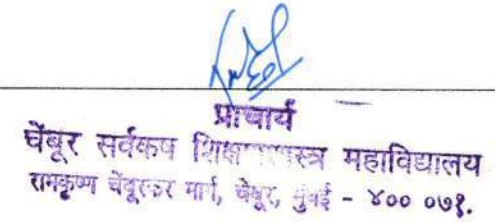 प्राचार्य
चेंबूर सर्वकष शिक्षणशास्त्र महाविद्यालय
रामकृष्ण चेंबूरकर मार्ग, चेंबूर, मुंबई - ४०० ०७१.